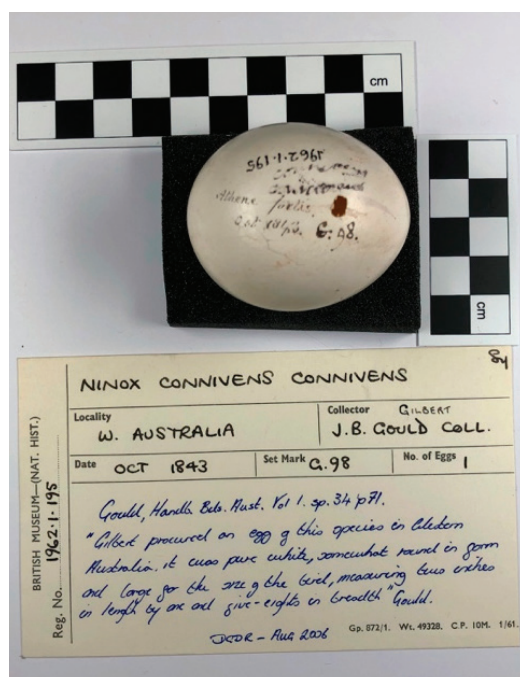 cm
1962.1.195
Athene fortis.
G. 98.
cm
NINOX CONNIVENS CONNIVENS
Locality
W. AUSTRALIA
Collector GILBERT
J.B. GOULD COLL.
Date OCT 1843
Set Mark G.98
No. of Eggs 1
BRITISH MUSEUM—(NAT. HIST.)
Reg. No. 1962.1.195
Gould, Handb. Bds. Aust. Vol 1. sp. 34 p71.
"Gilbert procured an egg of this species in Western
Australia. it was pure white, somewhat round in form
and large for the size of the bird, measuring two inches
in length by one and five-eights in breadth" Gould.
– Aug 2006
Gp. 872/1. Wt. 49328. C.P. 10M. 1/61.